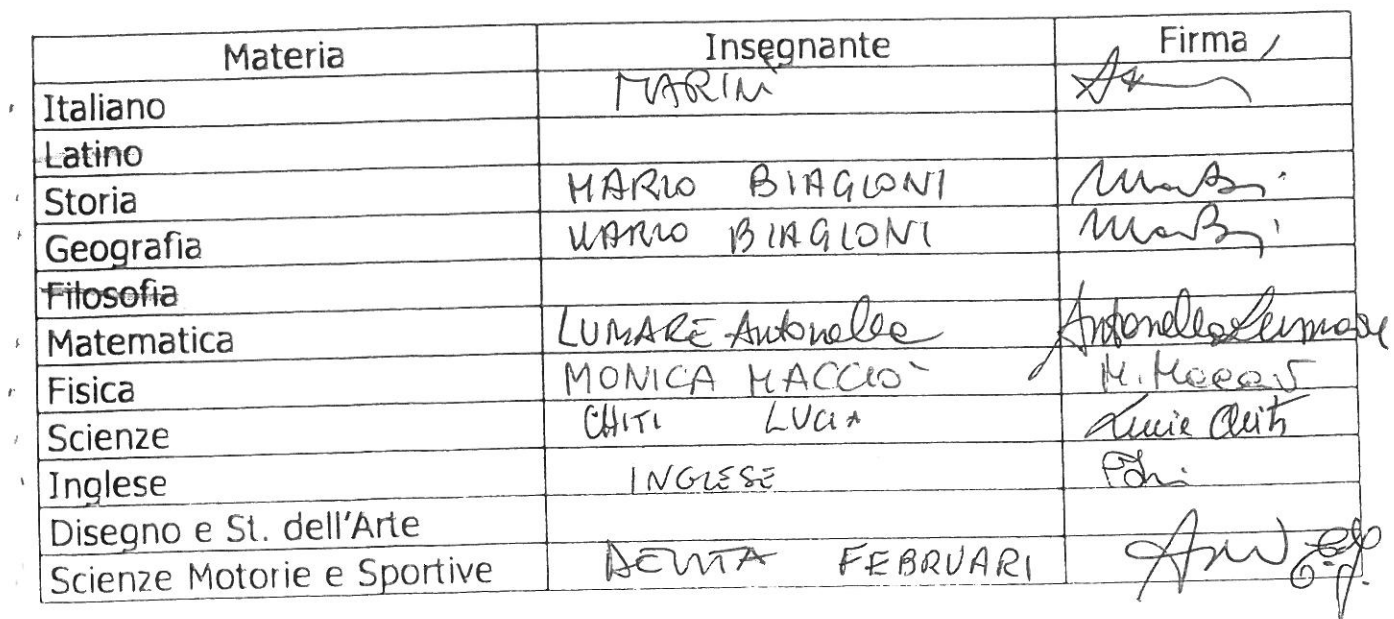 Materia Insegnante Firma
Italiano MARINI
Latino
Storia MARIO BIAGIONI
Geografia MARIO BIAGIONI
Filosofia
Matematica LUMARE Antonella Antonella Lumare
Fisica MONICA MACCIO`
Scienze CHITI LUCIA Lucia Chiti
Inglese INGLESE
Disegno e St. dell'Arte
Scienze Motorie e Sportive FEBRUARI